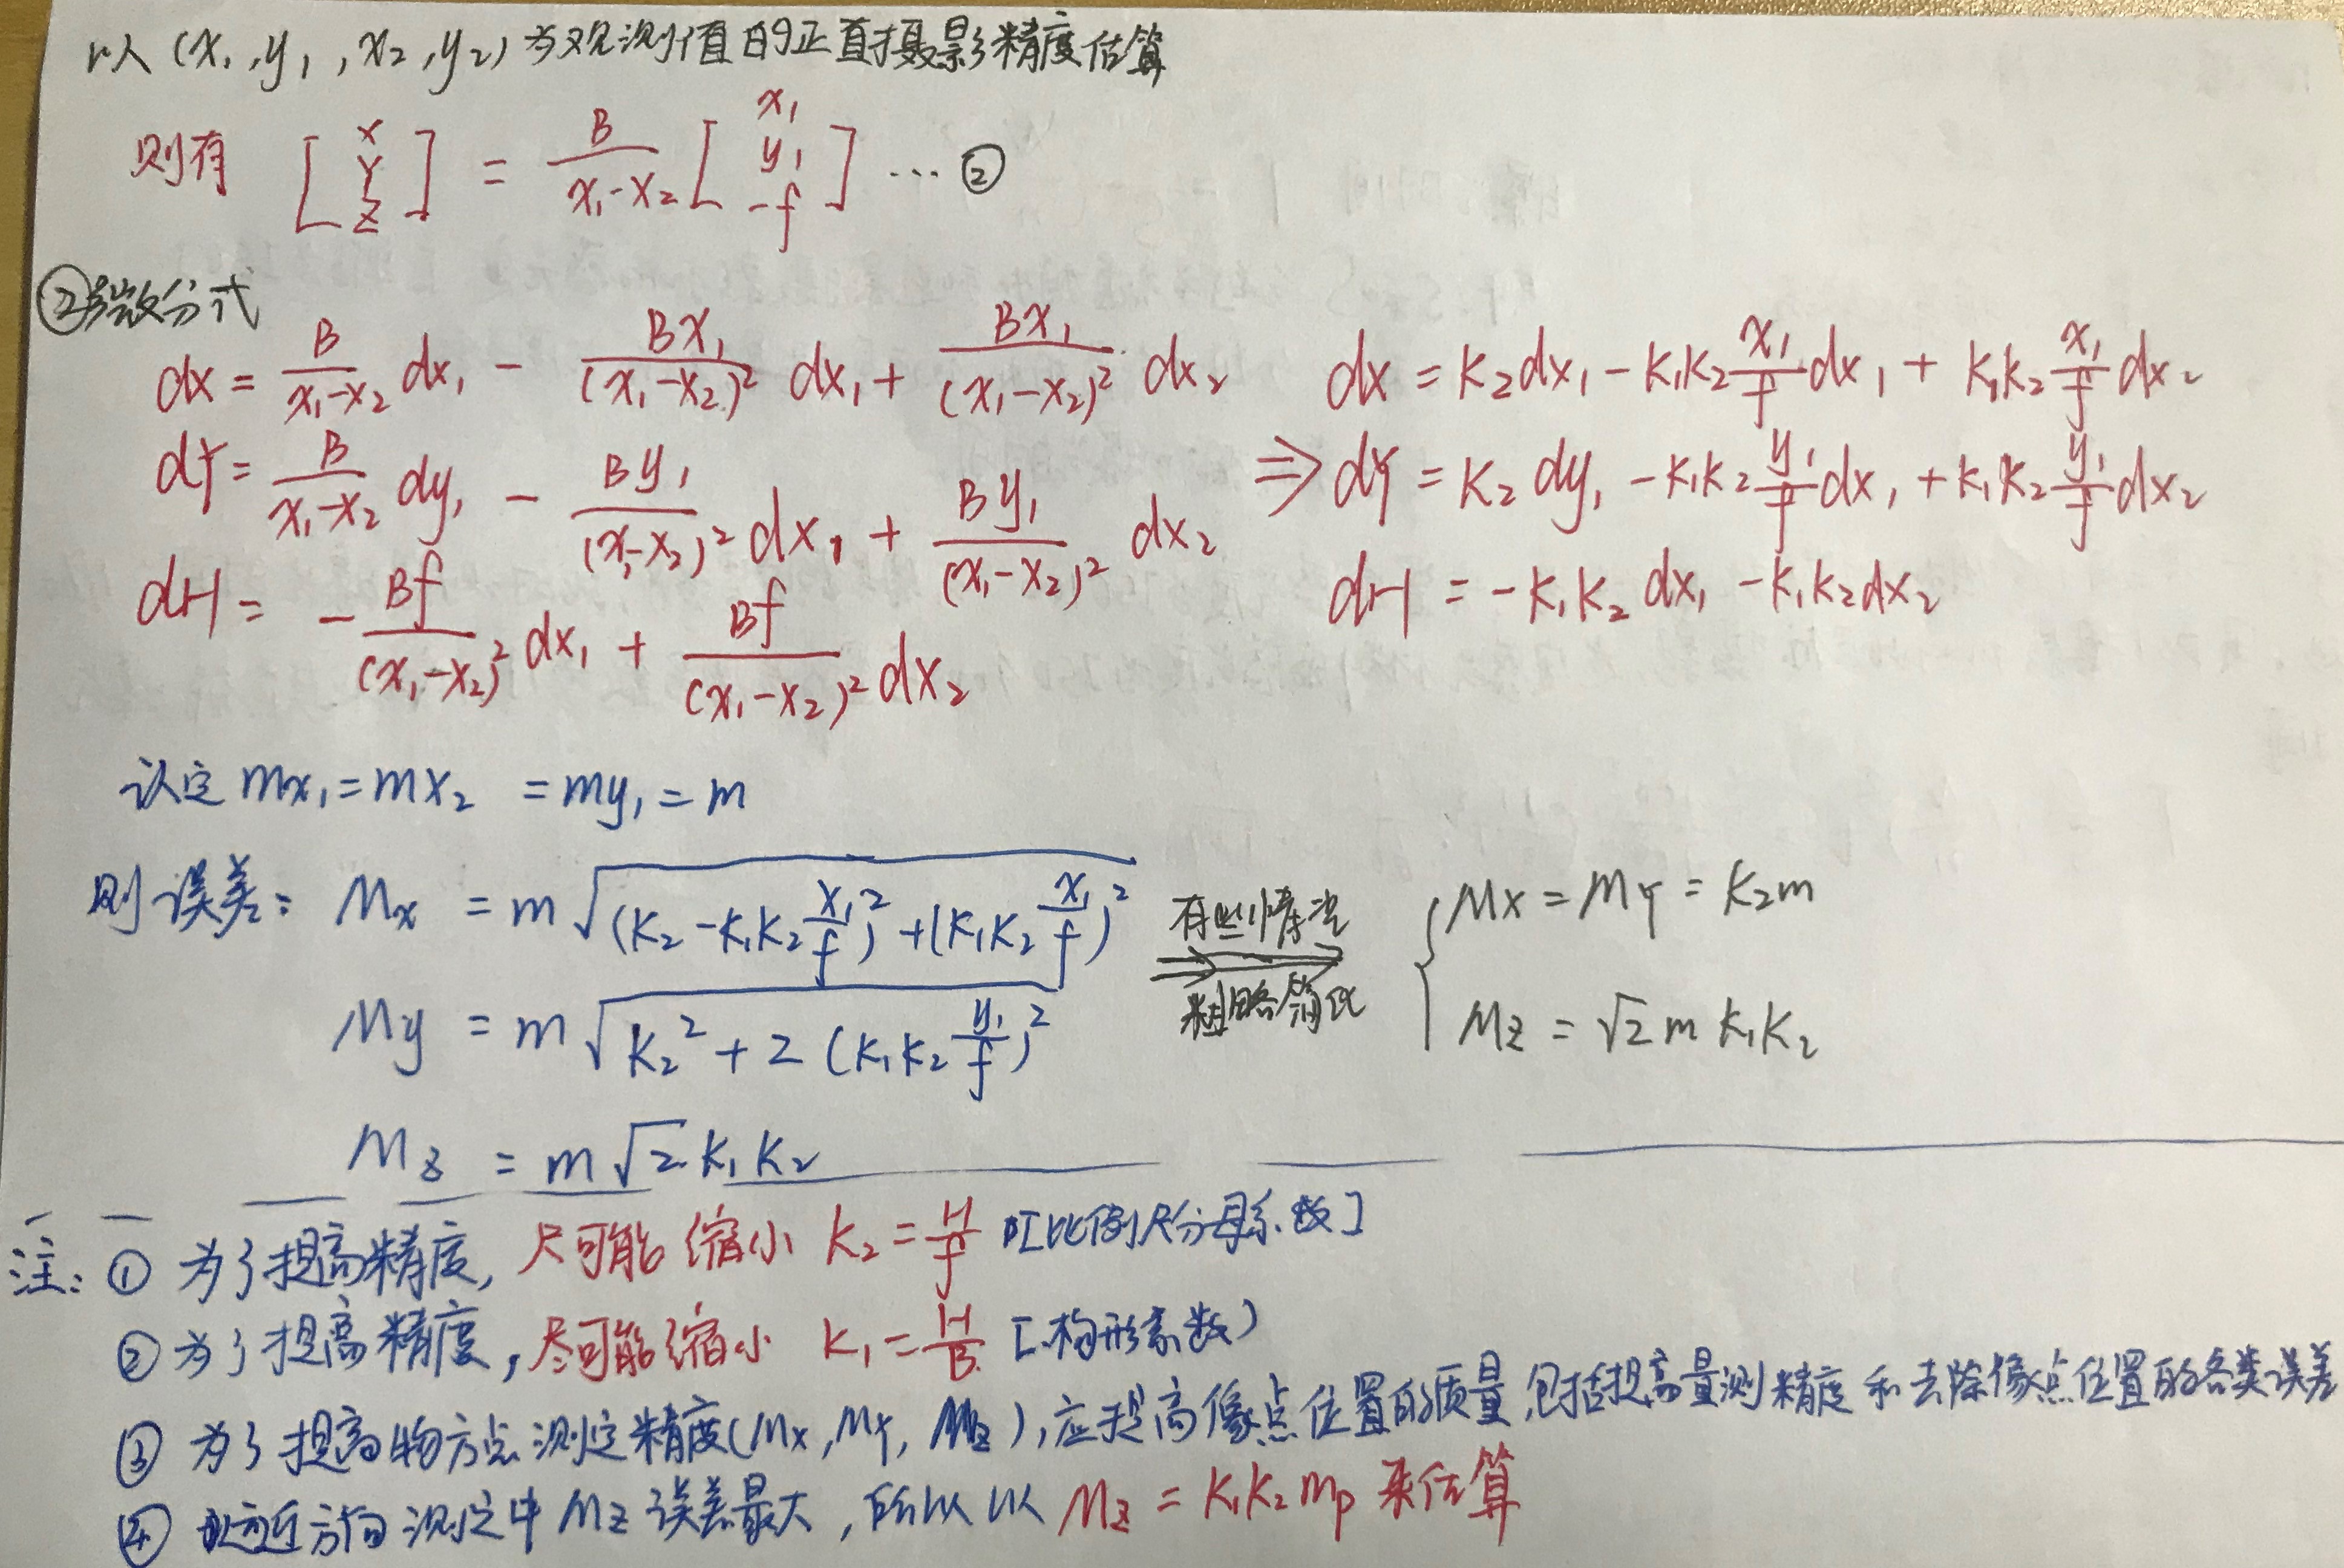 以(x₁,y₁,x₂,y₂)为观测值的正直摄影精度估算
则有 [X Y Z] = B/(x₁-x₂) [x₁ y₁ -f] … ②
②微分式
dx = B/(x₁-x₂) dx₁ - Bx₁/(x₁-x₂)² dx₁ + Bx₁/(x₁-x₂)² dx₂
dY = B/(x₁-x₂) dy₁ - By₁/(x₁-x₂)² dx₁ + By₁/(x₁-x₂)² dx₂
dH = -Bf/(x₁-x₂)² dx₁ + Bf/(x₁-x₂)² dx₂
dx = K₂dx₁ - K₁K₂ x₁/f dx₁ + K₁K₂ x₁/f dx₂
⇒ dY = K₂dy₁ - K₁K₂ y₁/f dx₁ + K₁K₂ y₁/f dx₂
dH = -K₁K₂dx₁ - K₁K₂dx₂
认定 mx₁ = mx₂ = my₁ = m
则误差: Mx = m√((K₂ - K₁K₂ x₁/f)² + (K₁K₂ x₁/f)²)
My = m√(K₂² + 2(K₁K₂ y₁/f)²)
Mz = m√2 K₁K₂
有些情况
粗略简化
Mx = MY = K₂m
Mz = √2 m K₁K₂
注: ① 为了提高精度, 尽可能缩小 K₂ = H/f [比例尺分母系数]
② 为了提高精度, 尽可能缩小 K₁ = H/B [构形系数)
③ 为了提高物方点测定精度(Mx,MY,Mz),应提高像点位置的质量,包括提高量测精度和去除像点位置的各类误差
④ 远近方向测定中Mz误差最大,所以以 Mz = K₁K₂mp 来估算